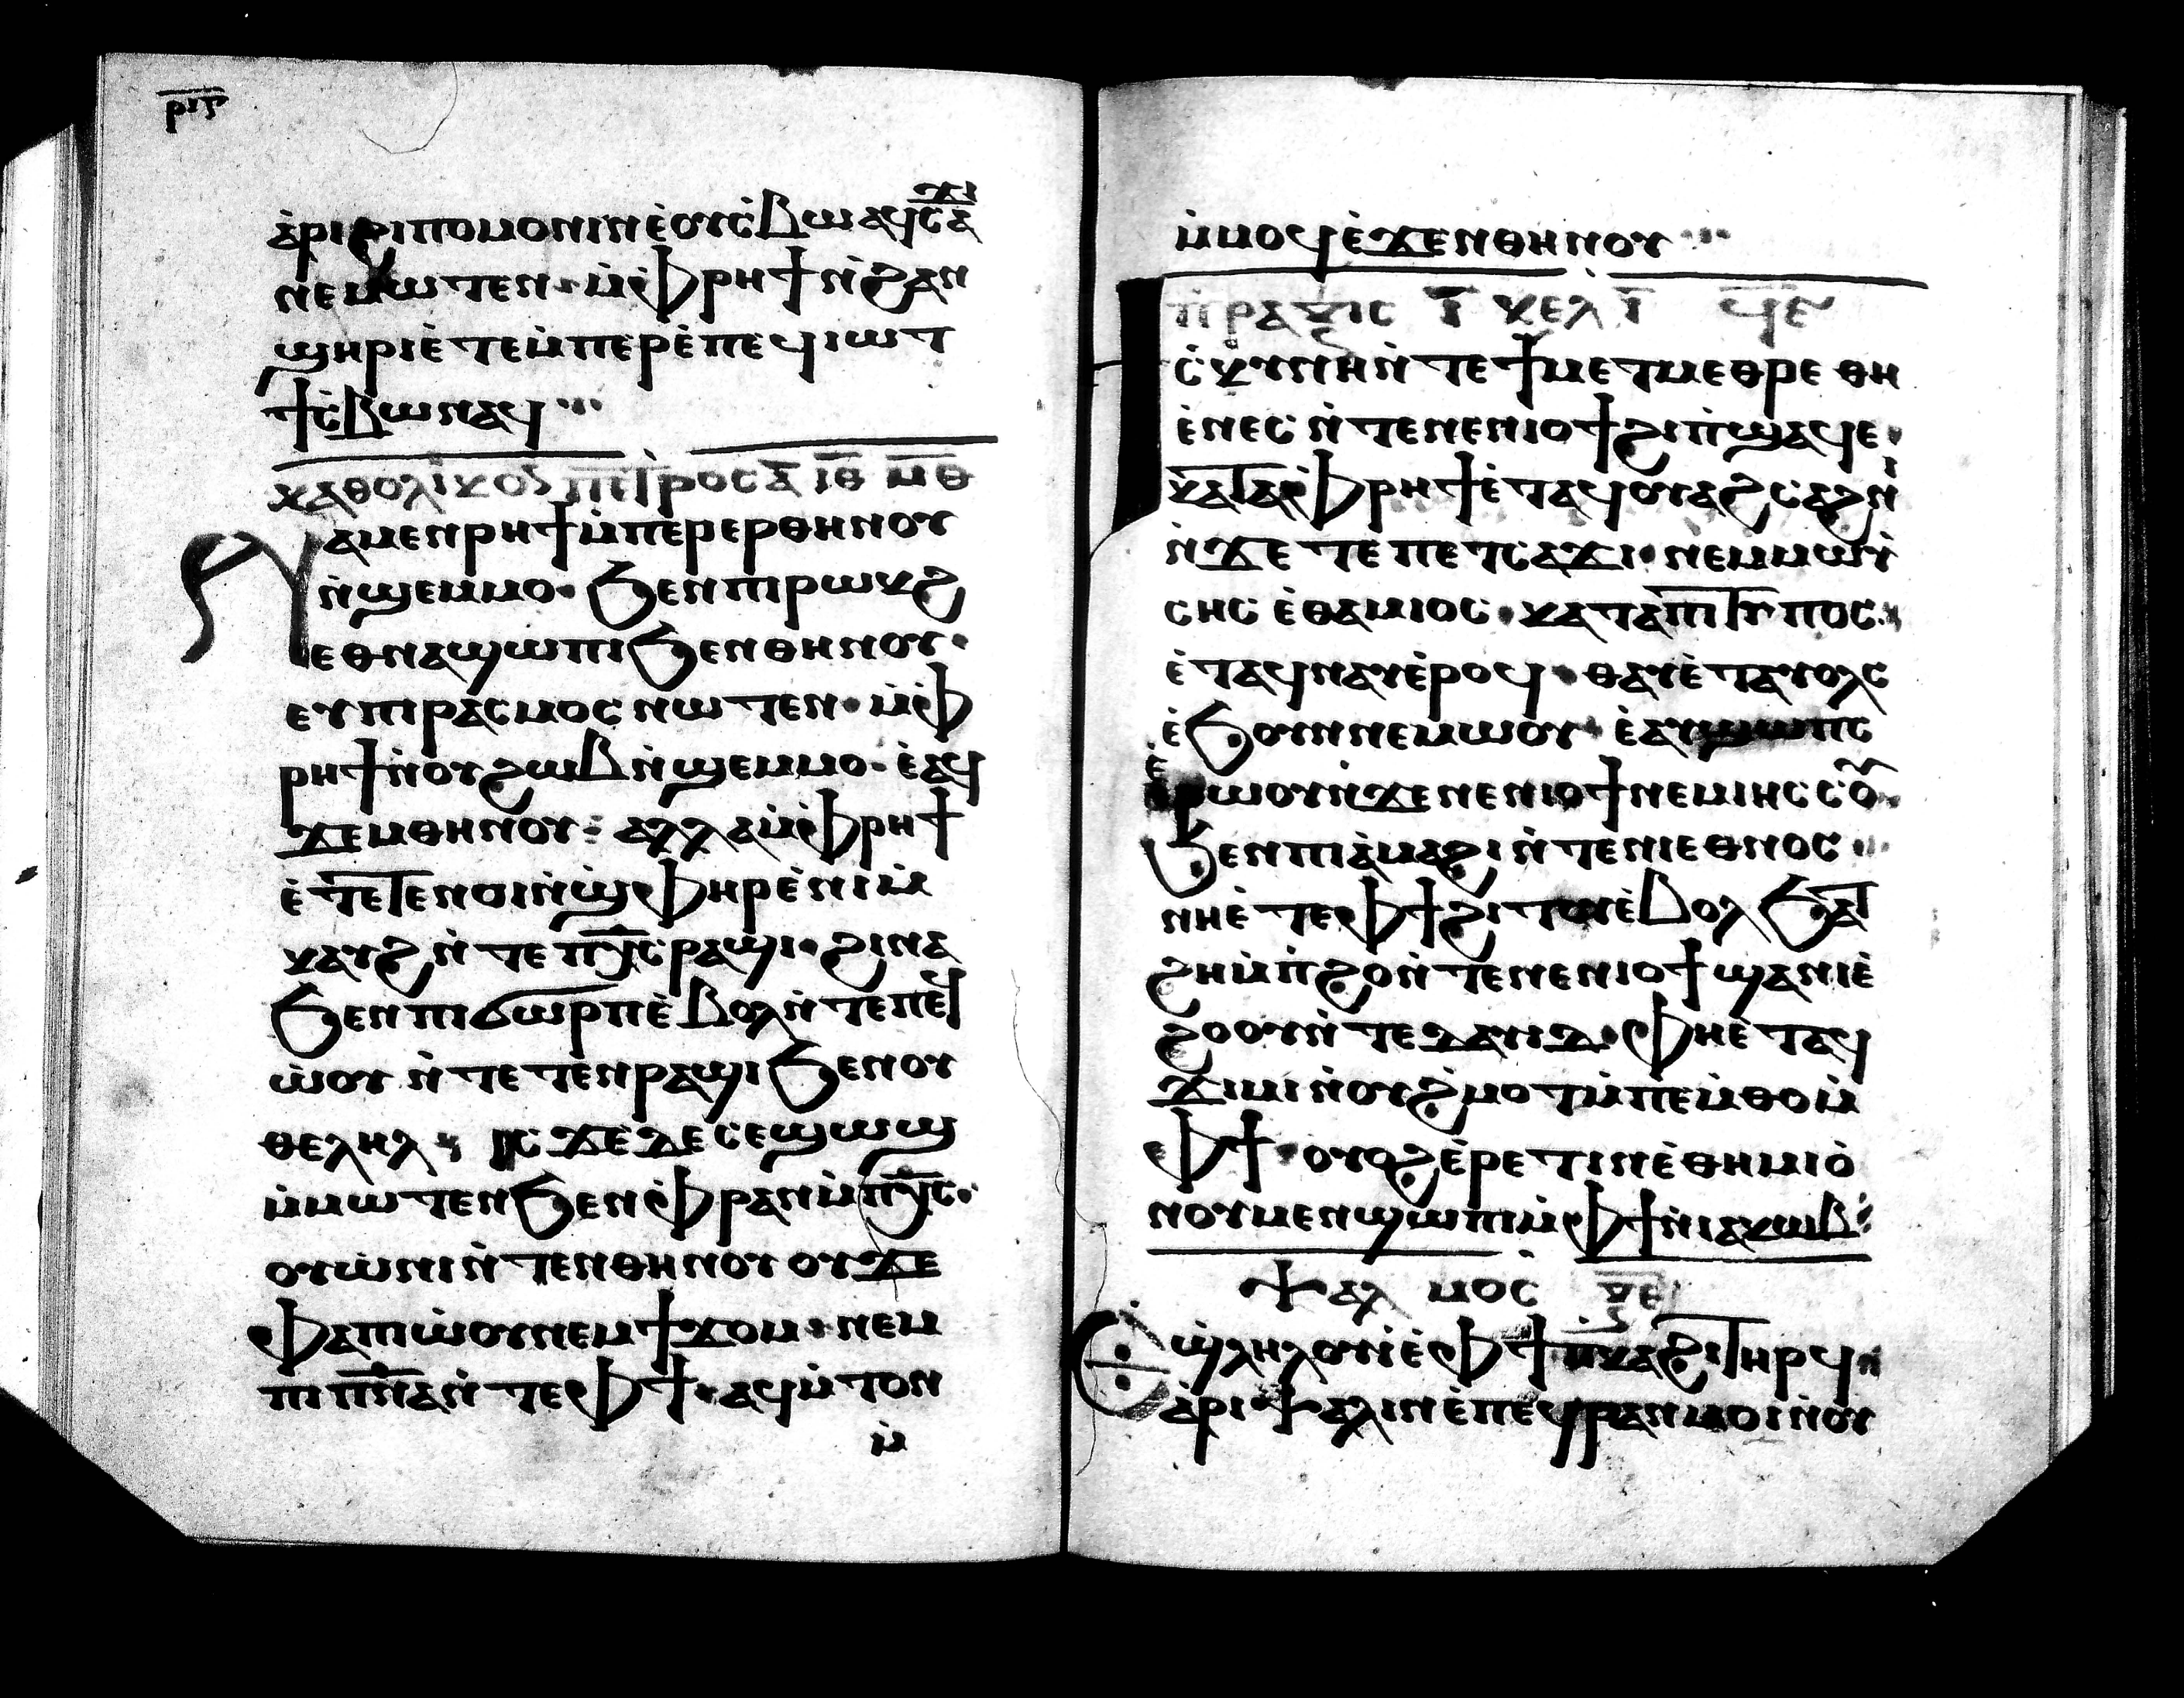 ⲣⲓⲋ
ⲁ̀ⲣⲓϩⲓⲡⲟⲙⲟⲛⲓⲛⲉ̀ⲟⲩⲥ̀ⲃⲱ ⲁϥⲥⲁϫⲓ
ⲛⲉⲙⲱⲧⲉⲛ · ⲙ̀ⲫⲣⲏϯ ⲛ̀ϩⲁⲛ
ϣⲏⲣⲓ ⲉ̀ⲧⲉⲙ̀ⲡⲉⲣⲉ̀ⲡⲉϥⲓⲱⲧ
ϯⲥ̀ⲃⲱ ⲛⲁϥ
ⲕⲁⲑⲟⲗⲓⲕⲟⲛ ⲡⲉⲧⲣⲟⲥ ⲁ̅ ⲓ̅ⲑ̅ ⲙ̅ⲑ̅
ⲛⲁⲙⲉⲛⲣⲏϯ ⲙ̀ⲡⲉⲣⲉⲣⲑⲏⲛⲟⲩ
ⲛ̀ϣⲉⲙⲙⲟ · ϧⲉⲛ ⲡⲓⲣⲱⲕϩ
ⲉⲑⲛⲁϣⲱⲡⲓ ϧⲉⲛ ⲑⲏⲛⲟⲩ ·
ⲉⲩⲡⲓⲣⲁⲥⲙⲟⲥ ⲛⲱⲧⲉⲛ · ⲙ̀ⲫ
ⲣⲏϯ ⲛ̀ⲟⲩϩⲱⲃ ⲛ̀ϣⲉⲙⲙⲟ · ⲉ̀ⲁϥ
ϫⲉⲙⲑⲏⲛⲟⲩ · ⲁⲗⲗⲁ ⲙ̀ⲫⲣⲏϯ
ⲉ̀ⲧⲉⲧⲉⲛⲟⲓ ⲛ̀ϣ̀ⲫⲏⲣ ⲉ̀ⲛⲓⲙ̀
ⲕⲁⲩϩ ⲛ̀ⲧⲉ ⲡⲭ̅ⲥ̅ ⲣⲁϣⲓ · ϩⲓⲛⲁ
ϧⲉⲛ ⲡⲓϭⲱⲣⲡ ⲉ̀ⲃⲟⲗ ⲛ̀ⲧⲉ ⲡⲉϥ
ⲱ̀ⲟⲩ ⲛ̀ⲧⲉⲧⲉⲛⲣⲁϣⲓ ϧⲉⲛ ⲟⲩ
ⲑⲉⲗⲏⲗ · ⲓⲥϫⲉ ⲇⲉ ⲥⲉϣⲱϣ
ⲙ̀ⲙⲱⲧⲉⲛ ϧⲉⲛ ⲫⲣⲁⲛ ⲙ̀ⲡⲭ̅ⲥ̅ ·
ⲟⲩⲱ̀ⲛⲓ ⲛ̀ⲧⲉⲛⲑⲏⲛⲟⲩ ⲟⲩϫⲉ
ⲫⲁ ⲡⲓⲱ̀ⲟⲩ ⲛⲉⲙ ϯϫⲟⲙ · ⲛⲉⲙ
ⲡⲓⲡ̅ⲛ̅ⲁ̅ ⲛ̀ⲧⲉ ⲫϯ · ⲁϥⲙ̀ⲧⲟⲛ
ⲙ̀
ⲙ̀ⲙⲟϥ ⲉ̀ϫⲉⲛ ⲑⲏⲛⲟⲩ
ⲡ̀ⲣⲁⲝⲓⲥ ⲓ̅ ⲕⲉⲗ ⲓ̅ ϥⲉ
ϯⲥ̀ⲕⲩⲛⲏ ⲛ̀ⲧⲉ ϯⲙⲉⲧⲙⲉⲑⲣⲉ ⲑⲏ
ⲉ̀ⲛⲉⲥ ⲛ̀ⲧⲉ ⲛⲉⲛⲓⲟϯ ϩⲓ ⲡ̀ϣⲁϥⲉ ·
ⲕⲁⲧⲁ ⲫⲣⲏϯ ⲉ̀ⲧⲁϥⲟⲩⲁϩⲥⲁϩⲛⲓ
ⲛ̀ϫⲉ ⲧⲉ ⲡⲉⲧⲥⲁϫⲓ · ⲛⲉⲙ ⲙⲱⲩ̀
ⲥⲏⲥ ⲉ̀ⲑⲁⲙⲓⲟⲥ · ⲕⲁⲧⲁ ⲡⲓⲧⲩⲡⲟⲥ ·
ⲉ̀ⲧⲁϥⲛⲁⲩ ⲉ̀ⲣⲟϥ · ⲑⲁⲓ ⲉ̀ⲧⲁⲩⲟⲗⲥ
ⲉ̀ϧⲟⲩⲛ ⲛⲉⲙⲱⲟⲩ · ⲉ̀ⲁⲩϣⲱⲡⲥ
ⲉ̀ⲣⲱⲟⲩ ⲛ̀ϫⲉ ⲛⲉⲛⲓⲟϯ ⲛⲉⲙ ⲓⲏⲥⲥⲟⲩ
ϧⲉⲛ ⲡⲓⲁ̀ⲙⲁϩⲓ ⲛ̀ⲧⲉ ⲛⲓⲉⲑⲛⲟⲥ ·
ⲛⲏ ⲉ̀ⲧⲉ ⲫϯ ϩⲓⲧⲟⲩ ⲉ̀ⲃⲟⲗ ϧⲁⲧ
ϩⲏ ⲙ̀ⲡ̀ϩⲟ ⲛ̀ⲧⲉ ⲛⲉⲛⲓⲟϯ ϣⲁ ⲛⲓⲉ̀
ϩⲟⲟⲩ ⲛ̀ⲧⲉ ⲇⲁⲩⲓⲇ · ⲫⲏ ⲉ̀ⲧⲁϥ
ϫⲓⲙⲓ ⲛ̀ⲟⲩϩ̀ⲙⲟⲧ ⲙ̀ⲡⲉⲙ̀ⲑⲟ ⲙ̀
ⲫϯ · ⲟⲩⲟϩ ⲉ̀ⲣⲉⲧⲓⲛ ⲉ̀ⲑⲏⲙⲓⲟ̀
ⲛⲟⲩⲙⲉⲛϣⲱⲡⲓ ⲙ̀ⲫϯ ⲛ̀ⲓⲁⲕⲱⲃ
ⲯⲁⲗⲙⲟⲥ ⲝ̅ⲉ̅
ⲉϣ̀ⲗⲏⲗⲟⲩⲓ̀ ⲉ̀ⲫϯ ⲡ̀ⲕⲁϩⲓ ⲧⲏⲣϥ
ⲁ̀ⲣⲓⲯⲁⲗⲓⲛ ⲉ̀ⲡⲉϥⲣⲁⲛ ⲙⲟⲓ ⲛ̀ⲟⲩ